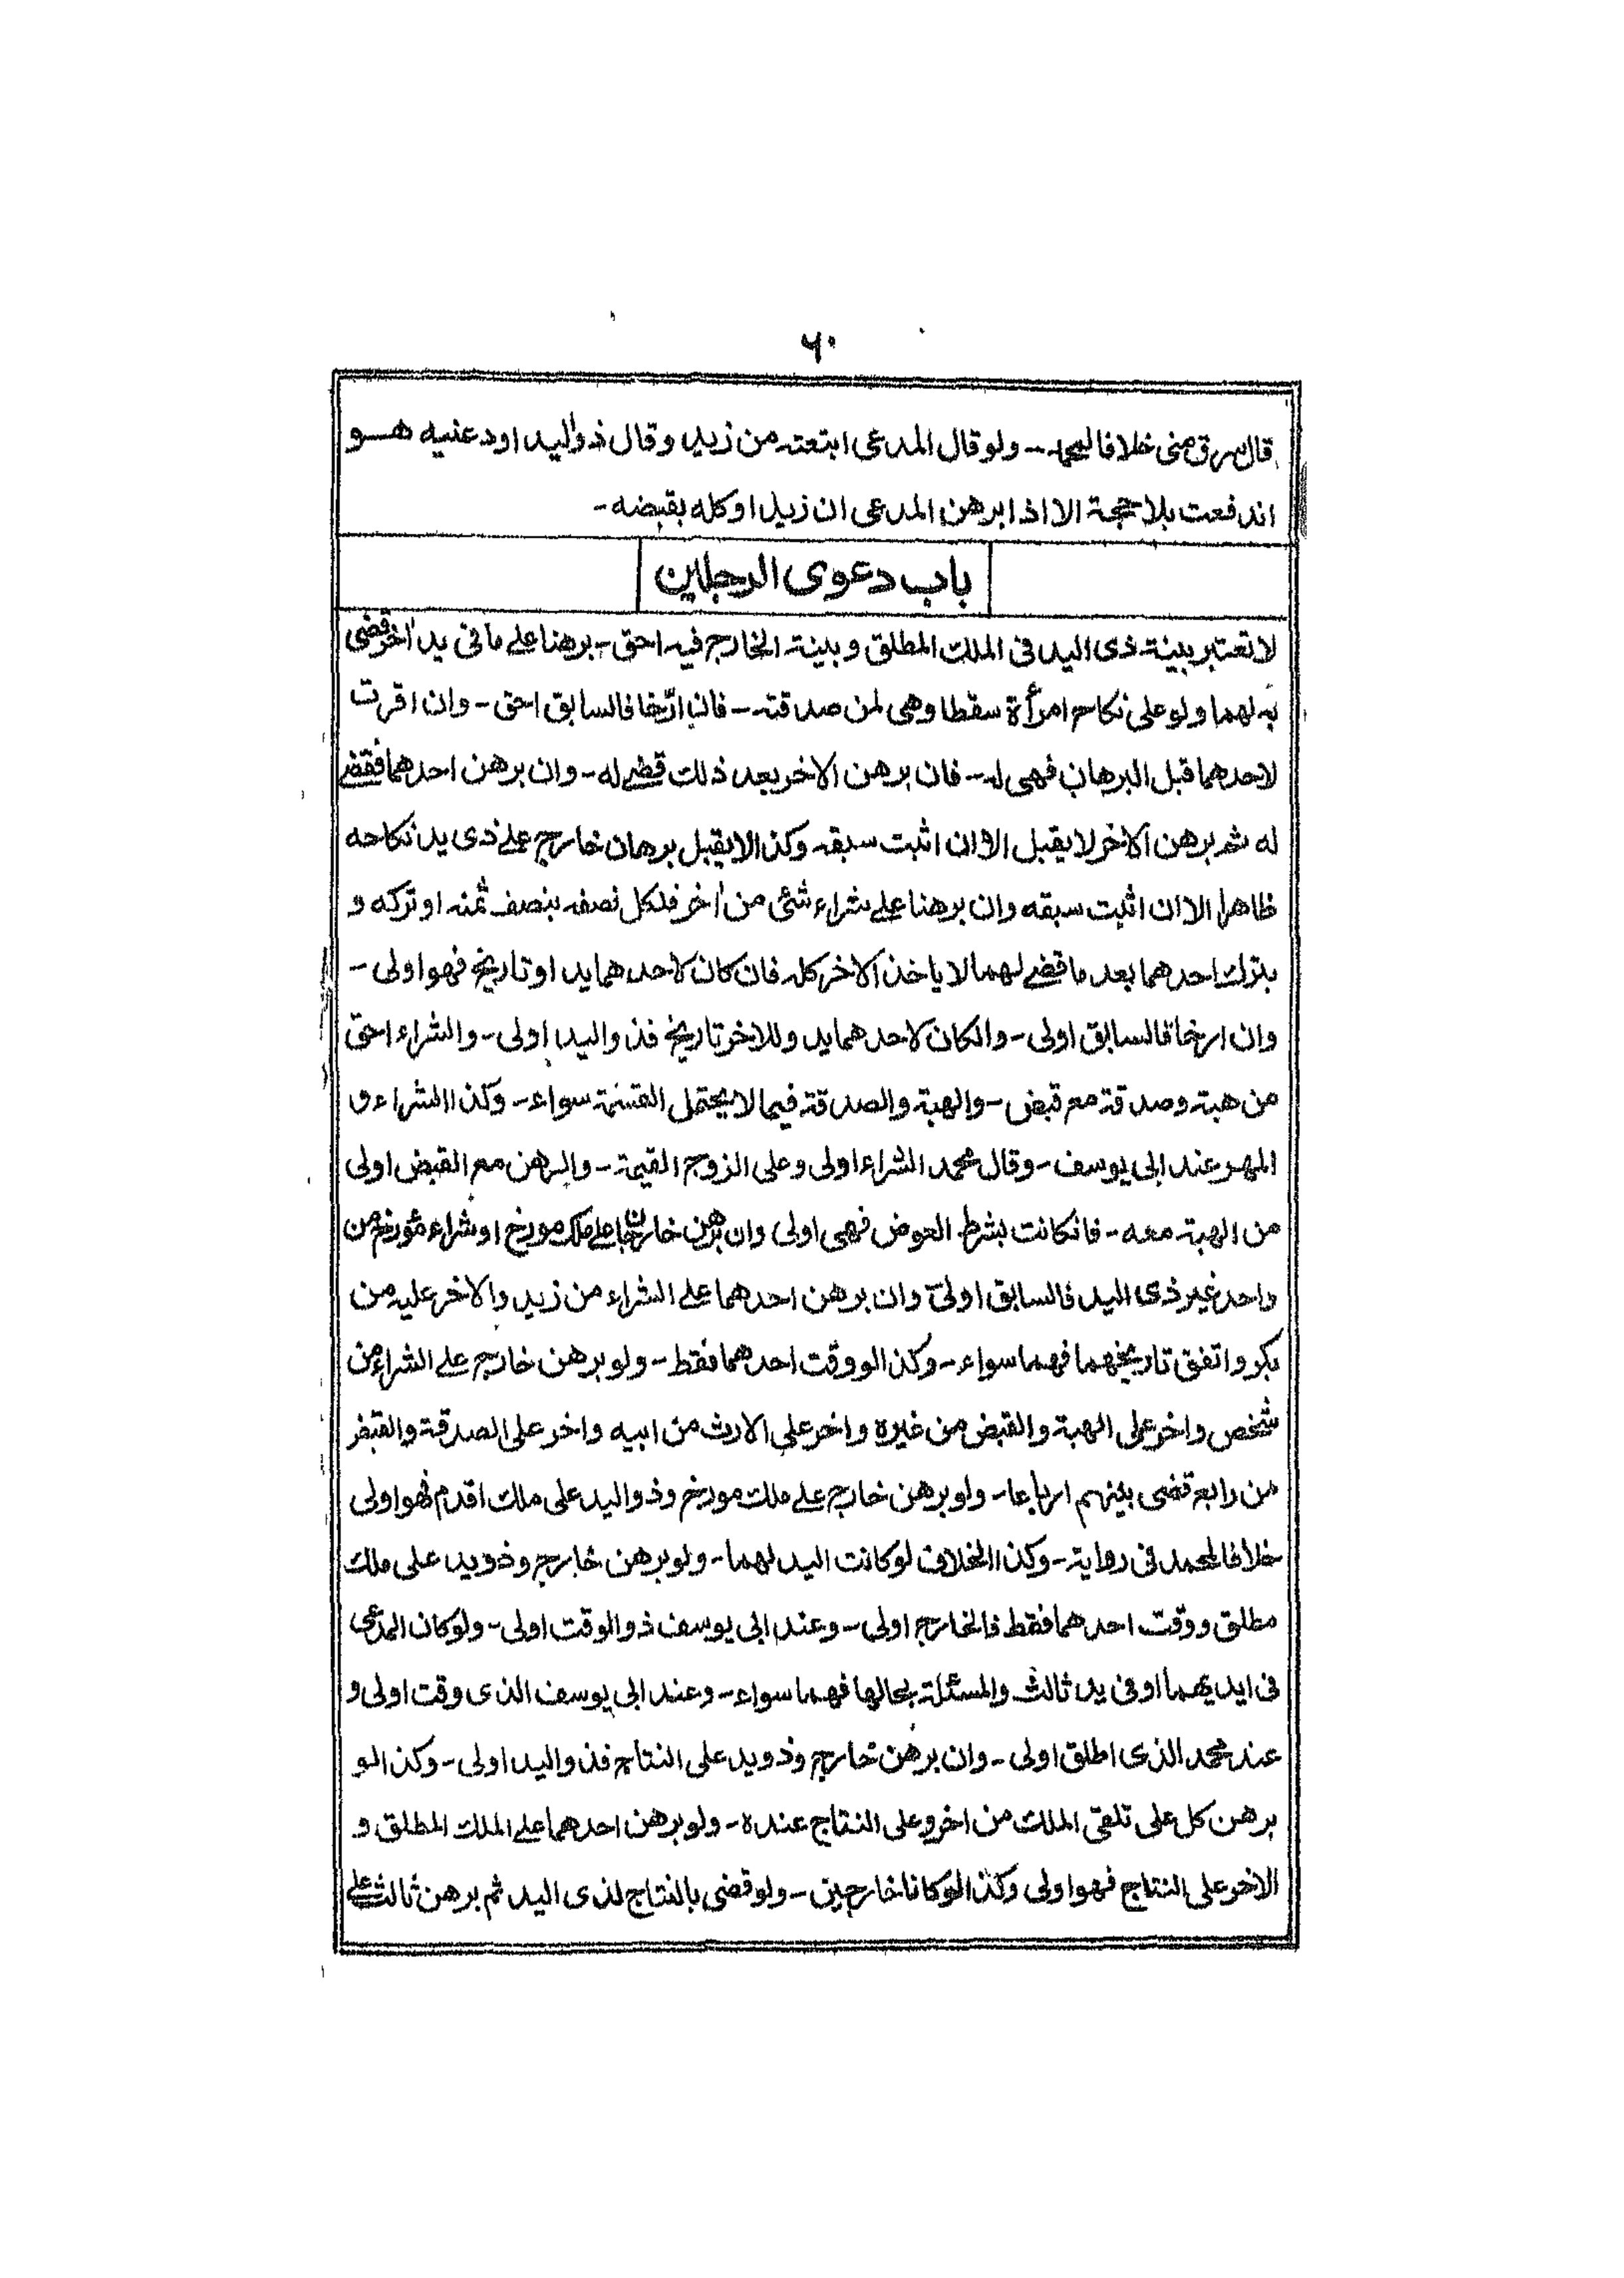 ٦٠
قال سرق منی خلافا لمحمد - ولو قال المدعی ابتعته من زید وقال ذوالید اودعنیه هــو
اندفعت بلا حجة الا اذا برهن المدعی ان زیدا وکله بقبضه -
باب دعوی الرجلین
لا تعتبر بینة ذی الید فی الملك المطلق و بینة الخارج فیه احق - برهنا علے ما فی ید اٰخر قضی
به لهما ولو علی نکاح امرأة سقطا وهی لمن صدقته - فان ارّخا فالسابق احق - وان اقرت
لاحدهما قبل البرهان فهی له - فان برهن الاخر بعد ذلك قضے له - وان برهن احدهما فقضے
له ثم برهن الاٰخر لا یقبل الا ان اثبت سبقه وکذا لا یقبل برهان خارج علے ذی ید نکاحه
ظاهرا الا ان اثبت سبقه وان برهنا علے شراء شئی من اٰخر فلکل نصفه بنصف ثمنه او ترکه و
بترك احدهما بعد ما قضے لهما لا یاخذ الاٰخر کله فان کان لاحدهما ید او تاریخ فهو اولی -
وان ارخا فالسابق اولی - وانکان لاحدهما ید وللاخر تاریخ فذ والید اولی - والشراء احق
من هبة وصدقة مع قبض - والهبة والصدقة فیما لا یحتمل القسمة سواء - وکذا الشراء و
المهر عند ابی یوسف - وقال محمد الشراء اولی وعلی الزوج القیمة - والرهن مع القبض اولی
من الهبة معه - فانکانت بشرط العوض فهی اولی وان برهن خارجان علے ملك مورخ او شراء مورخ من
واحد غیر ذی الید فالسابق اولی وان برهن احدهما علے الشراء من زید والاخر علیه من
بکر واتفق تاریخهما فهما سواء - وکذا لو وقت احدهما فقط - ولو برهن خارج علے الشراء من
شخص واخر علی الهبة والقبض من غیره واخر علی الارث من ابیه واخر علی الصدقة والقبض
من رابع قضی بینهم ارباعا - ولو برهن خارج علے ملك مورخ وذ والید علی ملك اقدم فهو اولی
خلافا لمحمد فی روایة - وکذا الخلاف لو کانت الید لهما - ولو برهن خارج وذ وید علی ملك
مطلق ووقت احدهما فقط فالخارج اولی - وعند ابی یوسف ذ والوقت اولی - ولو کان المدعی
فی ایدیهما او فی ید ثالث والمسئلة بحالها فهما سواء - وعند ابی یوسف الذی وقت اولی و
عند محمد الذی اطلق اولی - وان برهن خارج وذ وید علی النتاج فذ والید اولی - وکذا لو
برهن کل علی تلقی الملك من اخر وعلی النتاج عنده - ولو برهن احدهما علے الملك المطلق و
الاخر علی النتاج فهو اولی وکذا لو کانا خارجین - ولو قضی بالنتاج لذی الید ثم برهن ثالث علے